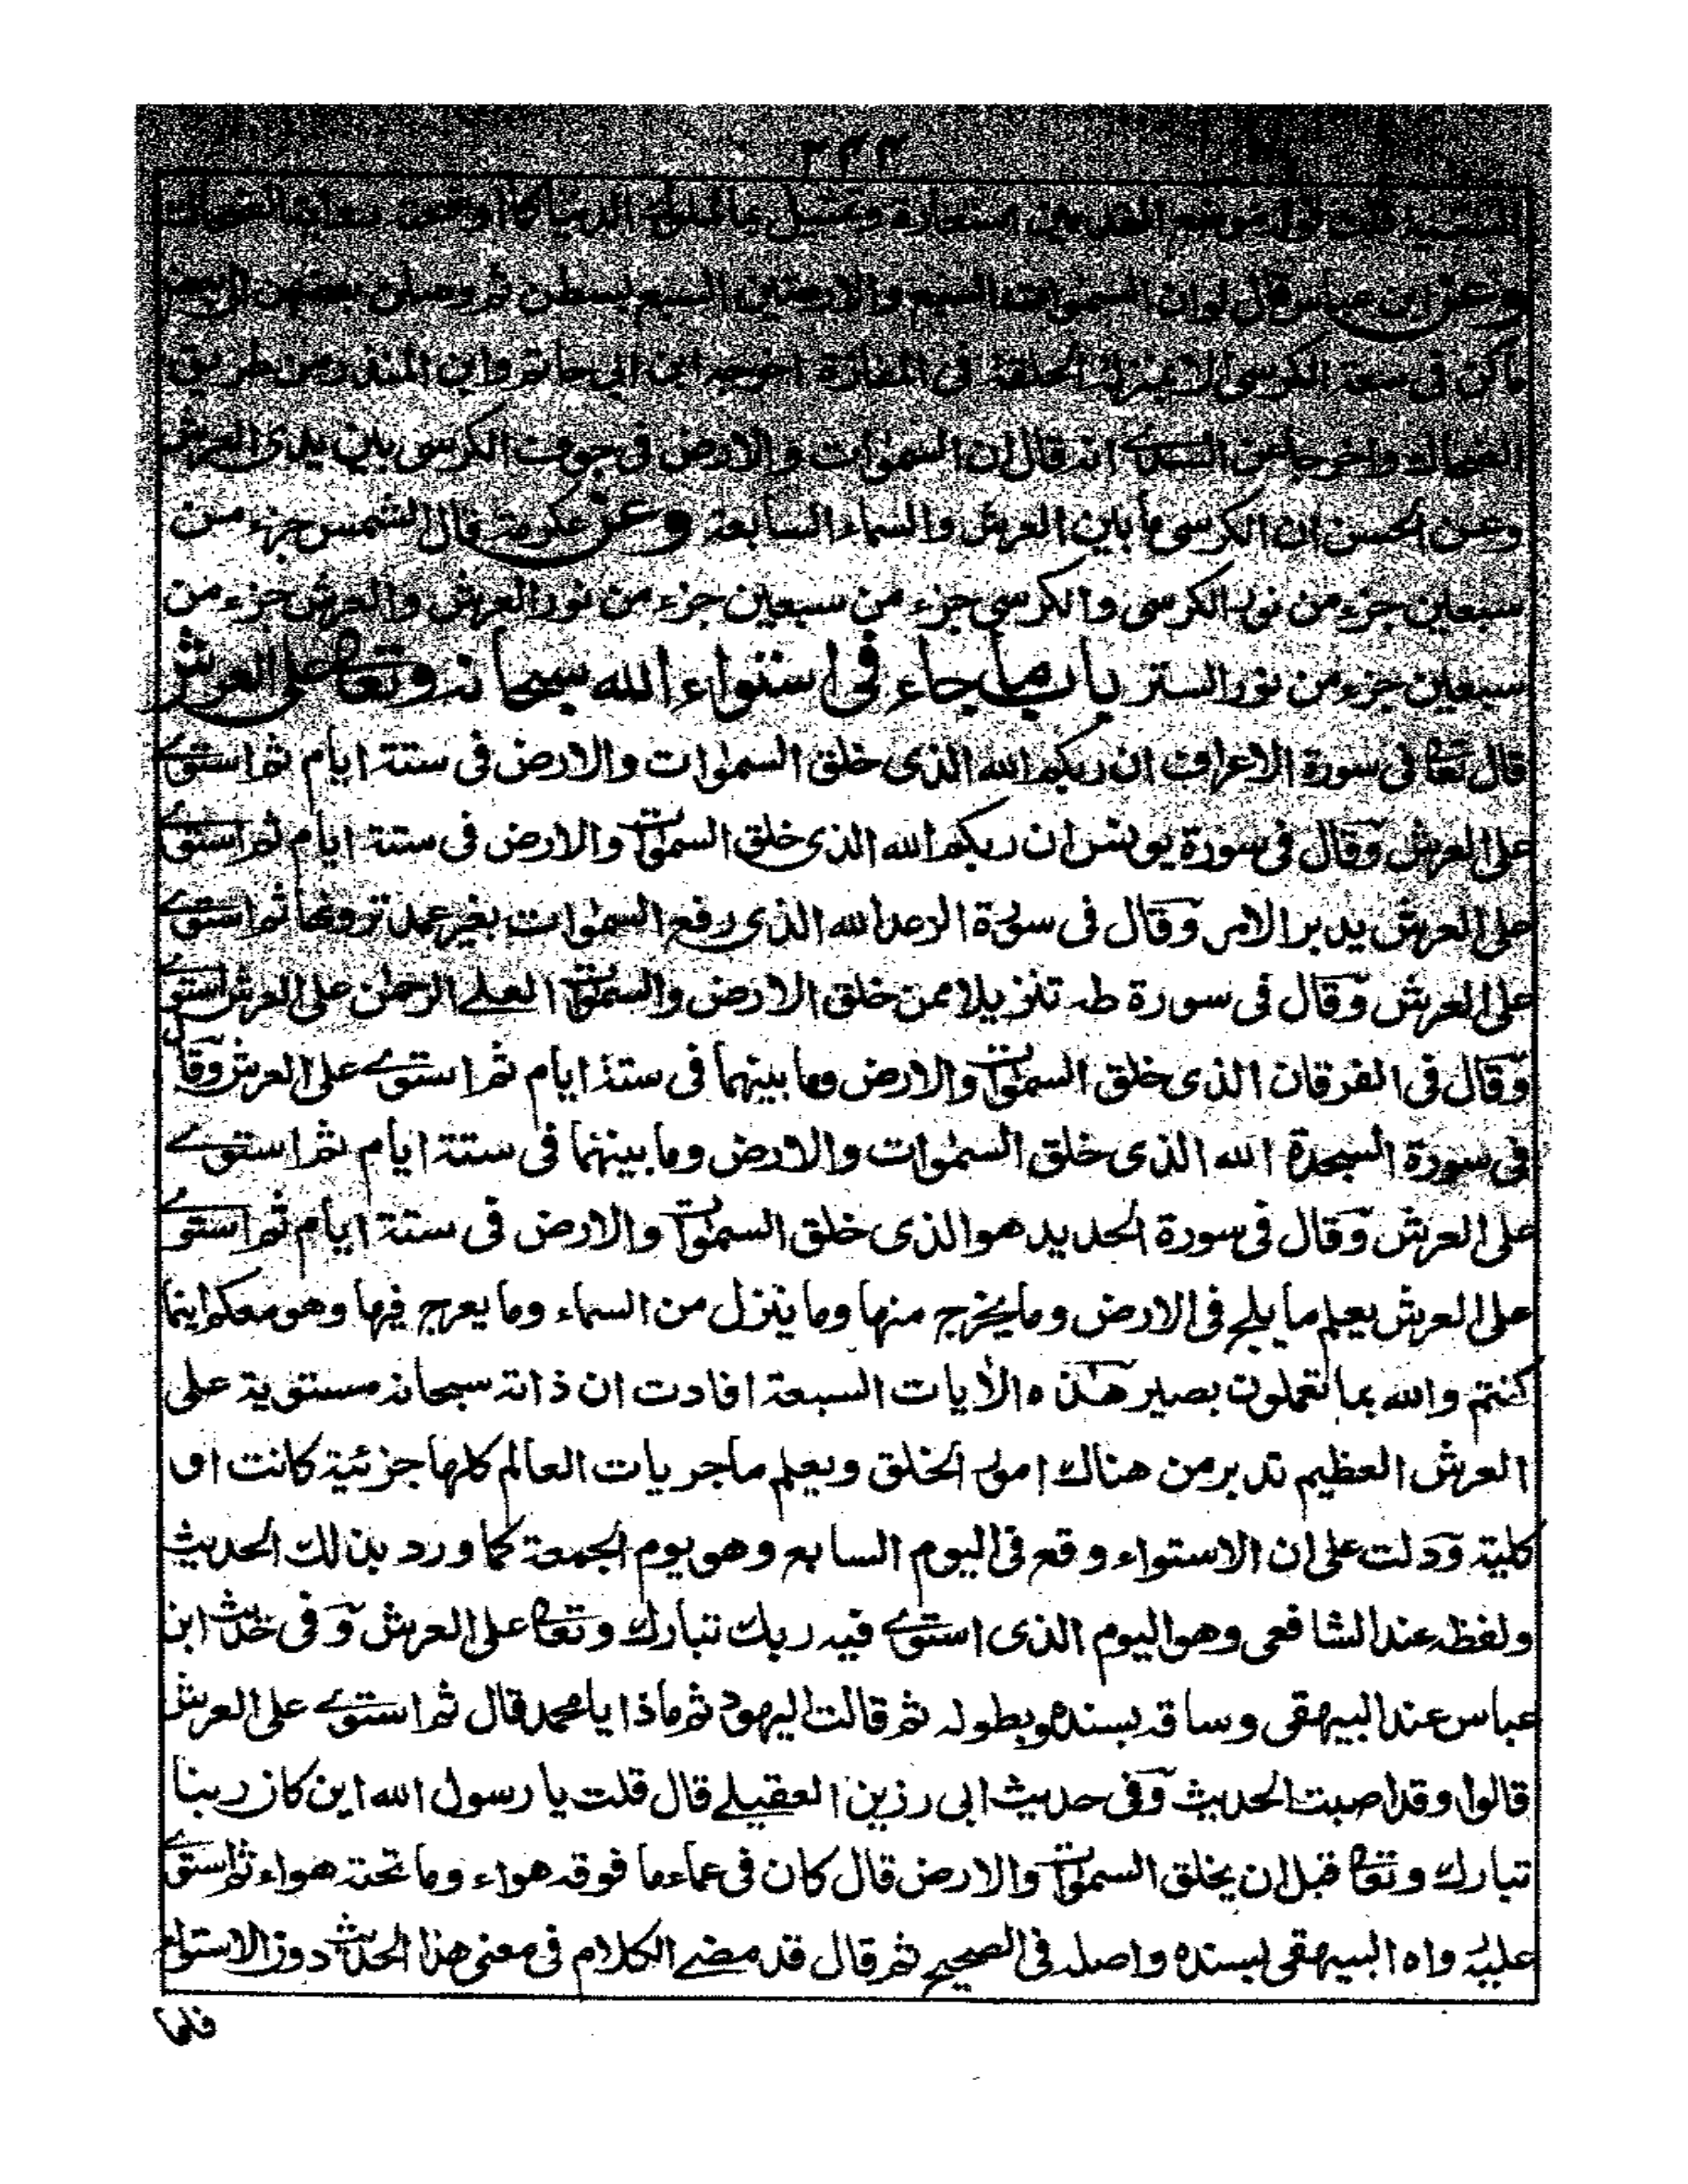 وعن ابن عباس قال لو ان السمٰوات السبع والارضين السبع بسطن ثم وصلن بعضهن الى بعض
ما كن فى سعة الكرسى الا بمنزلة الحلقة فى المفازة اخرجه ابن ابى حاتم وابن المنذر من طريق
الضحاك واخرجا عن السدى انه قال ان السمٰوات والارض فى جوف الكرسى بين يدى العرش
وعن الحسن ان الكرسى ما بين العرش والسماء السابعة وعن عكرمة قال الشمس جزء من
سبعين جزء من نور الكرسى والكرسى جزء من سبعين جزء من نور العرش والعرش جزء من
سبعين جزء من نور الستر باب ما جاء فى استواء الله سبحانه وتعا على العرش
قال تعا فى سورة الاعراف ان ربكم الله الذى خلق السمٰوات والارض فى ستة ايام ثم استوے
على العرش وقال فى سورة يونس ان ربكم الله الذى خلق السمٰوات والارض فى ستة ايام ثم استوے
على العرش يدبر الامر وقال فى سورة الرعد الله الذى رفع السمٰوات بغير عمد ترونها ثم استوے
على العرش وقال فى سورة طه تنزيلا ممن خلق الارض والسمٰوات العلے الرحمٰن على العرش استوے
وقال فى الفرقان الذى خلق السمٰوات والارض وما بينهما فى ستة ايام ثم استوے على العرش وقال
فى سورة السجدة الله الذى خلق السمٰوات والارض وما بينهما فى ستة ايام ثم استوے
على العرش وقال فى سورة الحديد هو الذى خلق السمٰوات والارض فى ستة ايام ثم استوے
على العرش يعلم ما يلج فى الارض وما يخرج منها وما ينزل من السماء وما يعرج فيها وهو معكم اينما
كنتم والله بما تعملون بصير هذه الاٰيات السبعة افادت ان ذاته سبحانه مستوية على
العرش العظيم تدبر من هناك امور الخلق ويعلم ماجريات العالم كلها جزئية كانت او
كلية ودلت على ان الاستواء وقع فى اليوم السابع وهو يوم الجمعة كما ورد بذلك الحديث
ولفظه عند الشافعى وهو اليوم الذى استوے فيه ربك تبارك وتعا على العرش وفى حديث ابن
عباس عند البيهقى وساقه بسنده وبطوله ثم قالت اليهود ثم ماذا يا محمد قال ثم استوے على العرش
قالوا وقد اصبت الحديث وفى حديث ابى رزين العقيلے قال قلت يا رسول الله اين كان ربنا
تبارك وتعا قبل ان يخلق السمٰوات والارض قال كان فى عماء ما فوقه هواء وما تحته هواء ثم استوے
عليه رواه البيهقى بسنده واصله فى الصحيح ثم قال قد مضے الكلام فى معنى هذا الحديث دون الاستواء
فلما